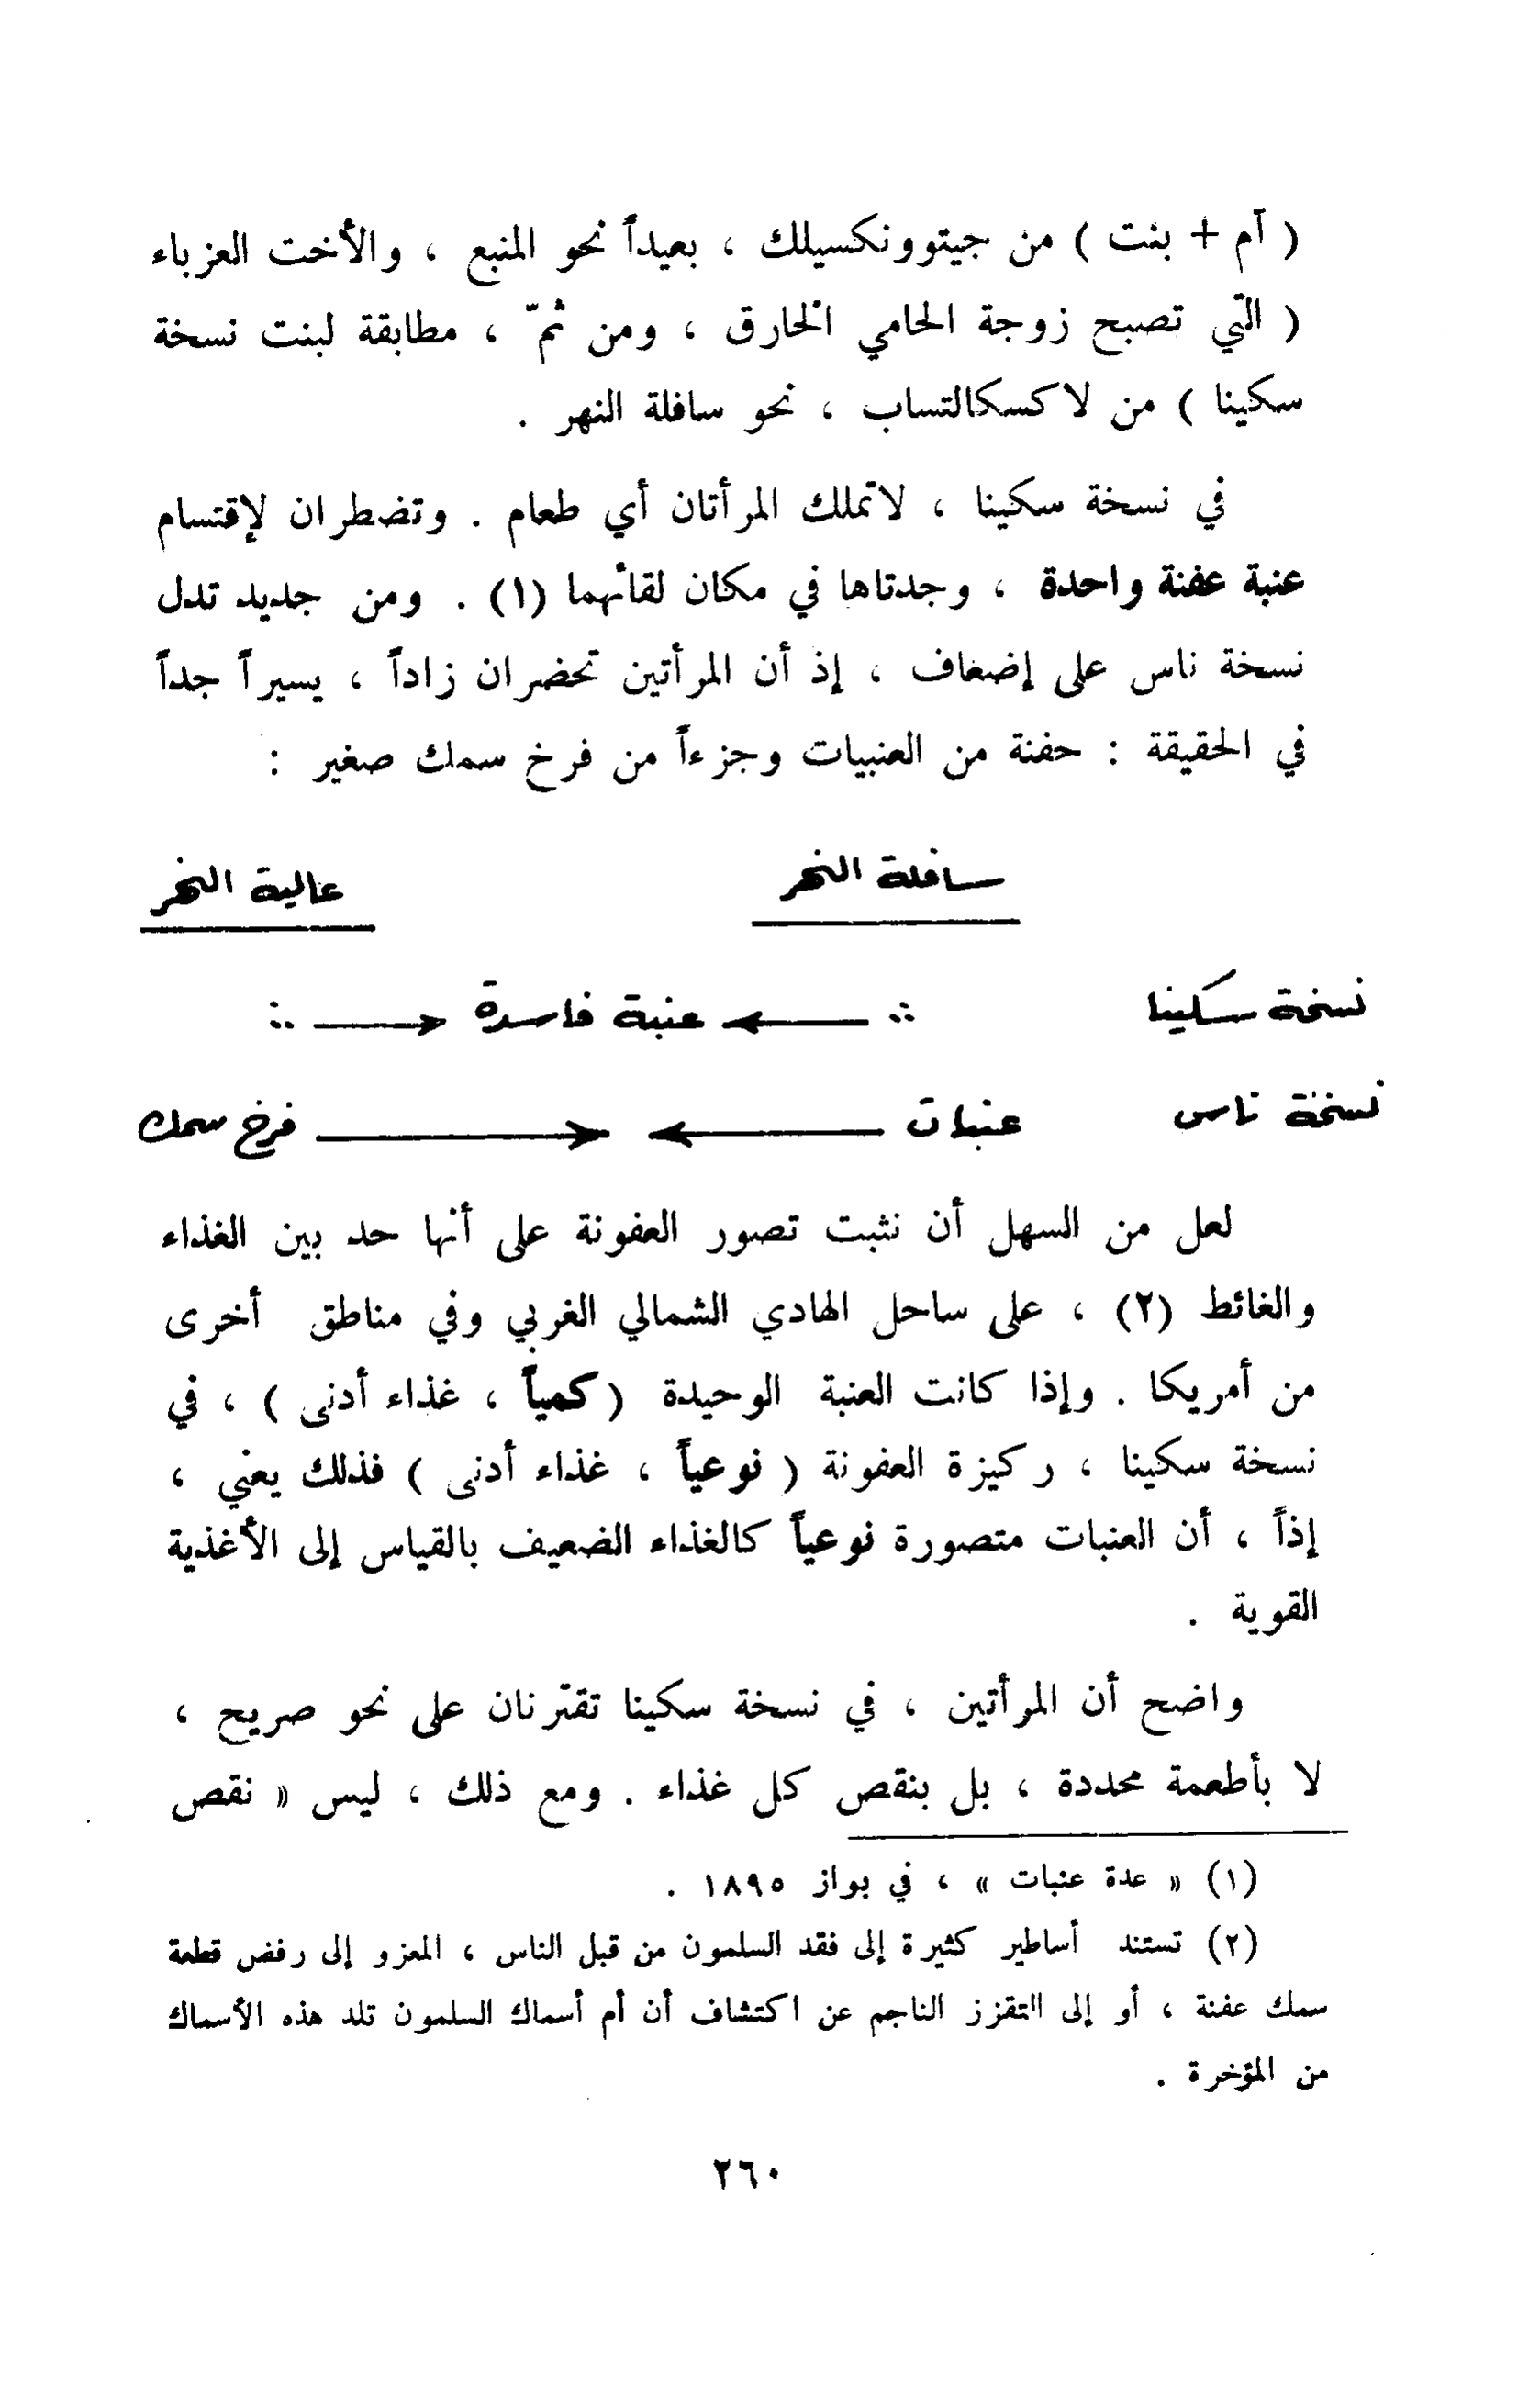 ( آم + بنت ) من جيتوونكسيلك ، بعيداً نحو المنبع ، والأخت العزباء
( التي تصبح زوجة الحامي الخارق ، ومن ثمّ ، مطابقة لبنت نسخة
سكينا ) من لاكسكالتساب ، نحو سافلة النهر .
في نسخة سكينا ، لاتملك المرأتان أي طعام . وتضطران لإقتسام
عنبة عفنة واحدة ، وجدتاها في مكان لقائهما (١) . ومن جديد تدل
نسخة ناس على إضعاف ، إذ أن المرأتين تحضران زاداً ، يسيراً جداً
في الحقيقة : حفنة من العنبيات وجزءاً من فرخ سمك صغير :
سافلة النهر عالية النهر
نسخة سكينا ∴ ← عنبة فاسدة → ∴
نسخة ناس عنبات ← → فرخ سمك
لعل من السهل أن نثبت تصور العفونة على أنها حد بين الغذاء
والغائط (٢) ، على ساحل الهادي الشمالي الغربي وفي مناطق أخرى
من أمريكا . وإذا كانت العنبة الوحيدة ( كمياً ، غذاء أدنى ) ، في
نسخة سكينا ، ركيزة العفونة ( نوعياً ، غذاء أدنى ) فذلك يعني ،
إذاً ، أن العنبات متصورة نوعياً كالغذاء الضعيف بالقياس إلى الأغذية
القوية .
واضح أن المرأتين ، في نسخة سكينا تقترنان على نحو صريح ،
لا بأطعمة محددة ، بل بنقص كل غذاء . ومع ذلك ، ليس « نقص
(١) « عدة عنبات » ، في بواز ١٨٩٥ .
(٢) تستند أساطير كثيرة إلى فقد السلمون من قبل الناس ، المعزو إلى رفض قطعة
سمك عفنة ، أو إلى التقزز الناجم عن اكتشاف أن أم أسماك السلمون تلد هذه الأسماك
من المؤخرة .
٢٦٠